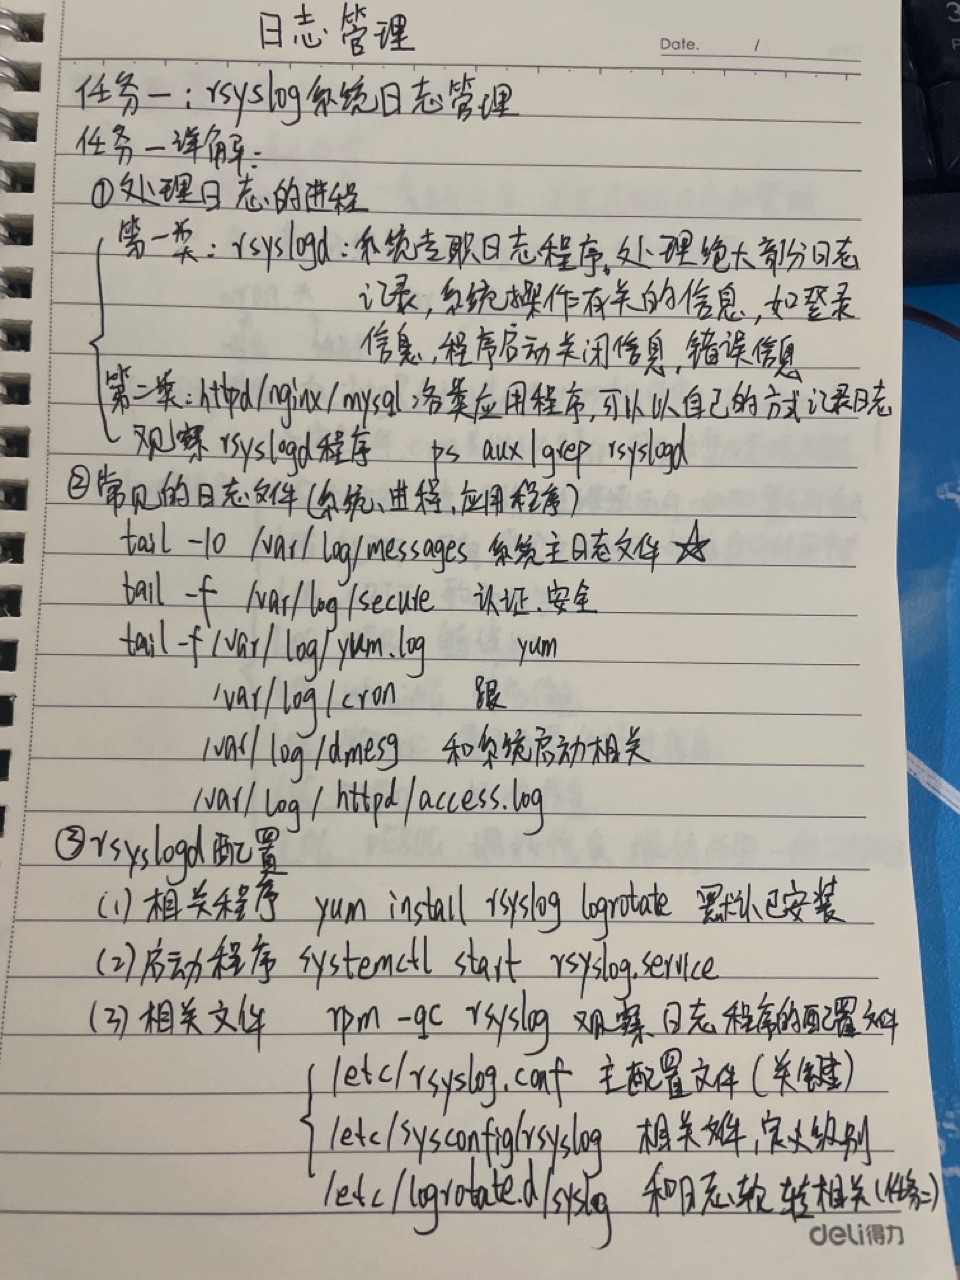 日志管理
Date. /
任务一：rsyslog系统日志管理
任务一详解：
①处理日志的进程
第一类：rsyslogd：系统专职日志程序。处理绝大部分日志
记录，系统操作有关的信息，如登录
信息，程序启动关闭信息，错误信息
第二类：httpd/nginx/mysql：各类应用程序，可以以自己的方式记录日志
观察rsyslogd程序 ps aux|grep rsyslogd
②常见的日志文件(系统、进程、应用程序)
tail -10 /var/log/messages 系统主日志文件 ☆
tail -f /var/log/secure 认证、安全
tail -f /var/log/yum.log yum
/var/log/cron 跟
/var/log/dmesg 和系统启动相关
/var/log/httpd/access.log
③rsyslogd配置
(1)相关程序 yum install rsyslog logrotate 默认已安装
(2)启动程序 systemctl start rsyslog.service
(3)相关文件 rpm -qc rsyslog 观察日志程序的配置文件
/etc/rsyslog.conf 主配置文件(关键)
/etc/sysconfig/rsyslog 相关文件，定义级别
/etc/logrotate.d/syslog 和日志转相关(任务二)
deli得力